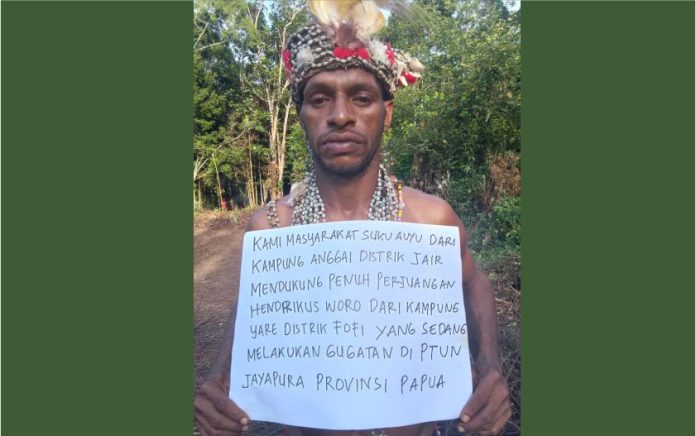 KAMI MASYARAKAT SUKU AUYU DARI
KAMPUNG ANGGAI DISTRIK JAIR
MENDUKUNG PENUH PERJUANGAN
HENDRIKUS WORO DARI KAMPUNG
YARE DISTRIK FOFI YANG SEDANG
MELAKUKAN GUGATAN DI PTUN
JAYAPURA PROVINSI PAPUA